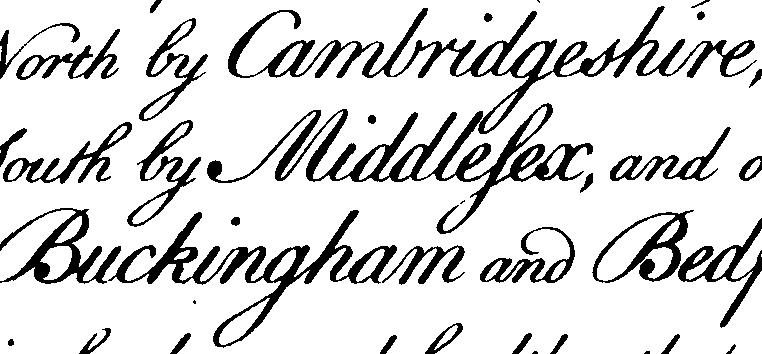 North by Cambridgeshire,
South by Middlesex, and
Buckingham and